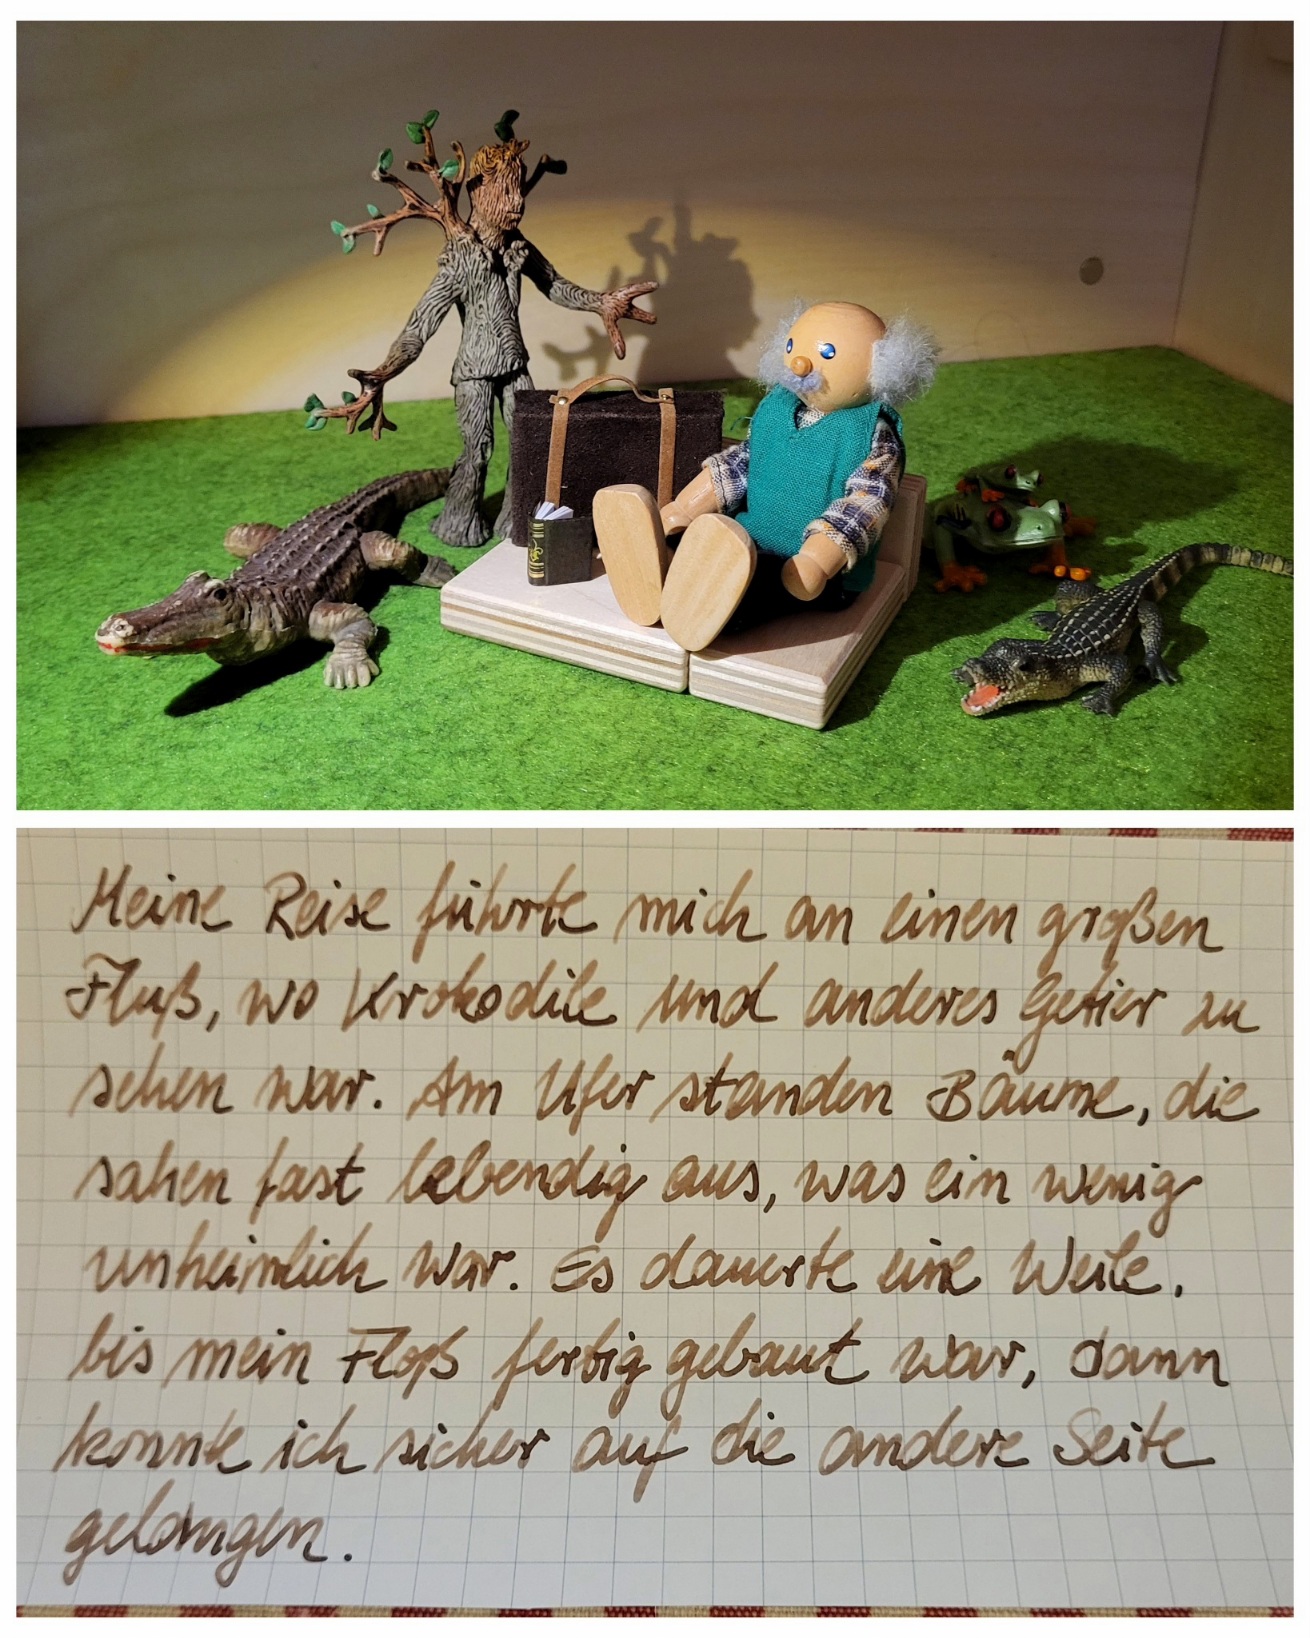 Meine Reise führte mich an einen großen
Fluß, wo Krokodile und anderes Getier zu
sehen war. Am Ufer standen Bäume, die
sahen fast lebendig aus, was ein wenig
unheimlich war. Es dauerte eine Weile,
bis mein Floß fertig gebaut war, dann
konnte ich sicher auf die andere Seite
gelangen.